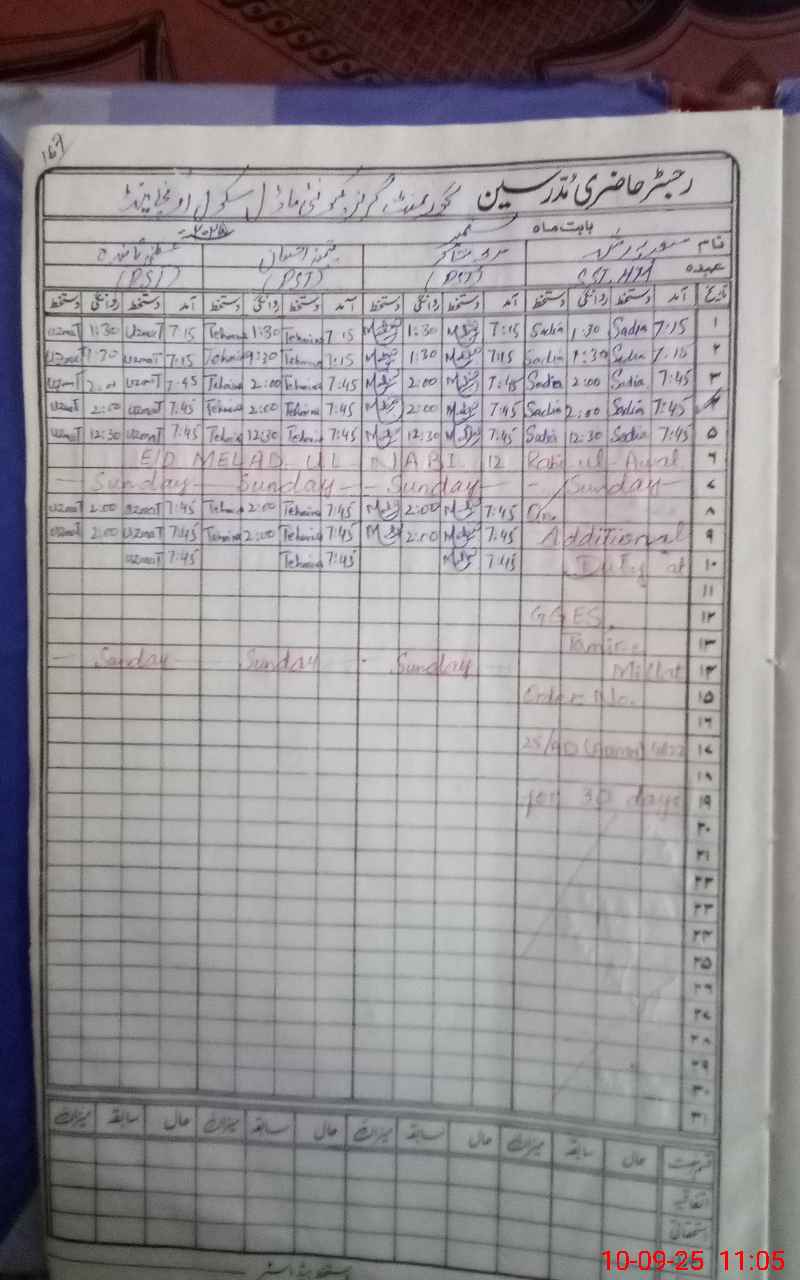 167
رجسٹر حاضری مدرسین گورنمنٹ گرلز کمیونٹی ماڈل سکول
بابت ماہ ستمبر
نام
عہدہ (PST) (PST) (PST)
تاریخ آمد دستخط روانگی دستخط آمد دستخط روانگی دستخط آمد دستخط روانگی دستخط آمد دستخط روانگی دستخط
۱ 7:15 Sadia 1:30 Sadia 7:15 1:30 7:15 Tehmina 1:30 Tehmina 7:15 Uzmat 1:30 Uzmat
۲ 7:15 Sadia 1:30 Sadia 7:15 1:30 7:15 Tehmina 1:30 Tehmina 7:15 Uzmat 1:30 Uzmat
۳ 7:45 Sadia 2:00 Sadia 7:45 2:00 7:45 Tehmina 2:00 Tehmina 7:45 Uzmat 2:00 Uzmat
۴ 7:45 Sadia 2:00 Sadia 7:45 2:00 7:45 Tehmina 2:00 Tehmina 7:45 Uzmat 2:00 Uzmat
۵ 7:45 Sadia 12:30 Sadia 7:45 12:30 7:45 Tehmina 12:30 Tehmina 7:45 Uzmat 12:30 Uzmat
۶ EID MELAD UL NABI 12 Rabi ul Awal
۷ Sunday Sunday Sunday Sunday
۸ On 7:45 2:00 7:45 Tehmina 2:00 Tehmina 7:45 Uzmat 2:00 Uzmat
۹ Additional 7:45 2:00 7:45 Tehmina 2:00 Tehmina 7:45 Uzmat 2:00 Uzmat
۱۰ Duty at 7:45 7:45 Tehmina 7:45 Uzmat
۱۱
۱۲ GGES.
۱۳ Tamir-e
۱۴ Millat Sunday Sunday Sunday
۱۵ Order No.
۱۶
۱۷
۱۸
۱۹ for 30 days
۲۰
۲۱
۲۲
۲۳
۲۴
۲۵
۲۶
۲۷
۲۸
۲۹
۳۰
۳۱
قسم رخصت حال سابقہ میزان حال سابقہ میزان حال سابقہ میزان حال سابقہ میزان
اتفاقیہ
استحقاقی
دستخط ہیڈ ماسٹر
10-09-25 11:05